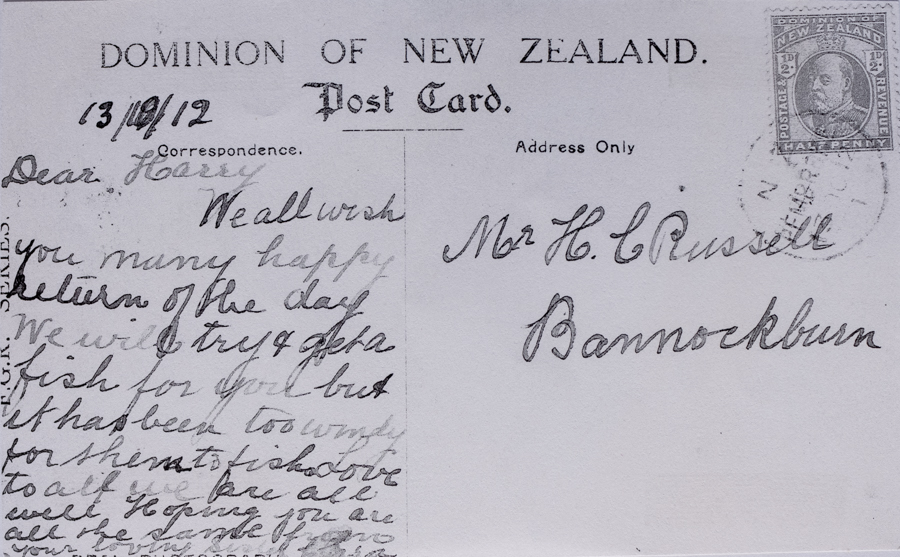 DOMINION OF NEW ZEALAND.
Post Card.
13/8/12
Correspondence.
Address Only
Dear Harry
We all wish
you many happy
return of the day
We will try & get a
fish for you but
it has been too windy
for them to fish Love
to all we are all
well Hoping you are
all the same from
your loving
Mr H. C Russell
Bannockburn
F.G.R. SERIES.
DOMINION OF
NEW ZEALAND
1D/2 1D/2
POSTAGE & REVENUE
HALF PENNY